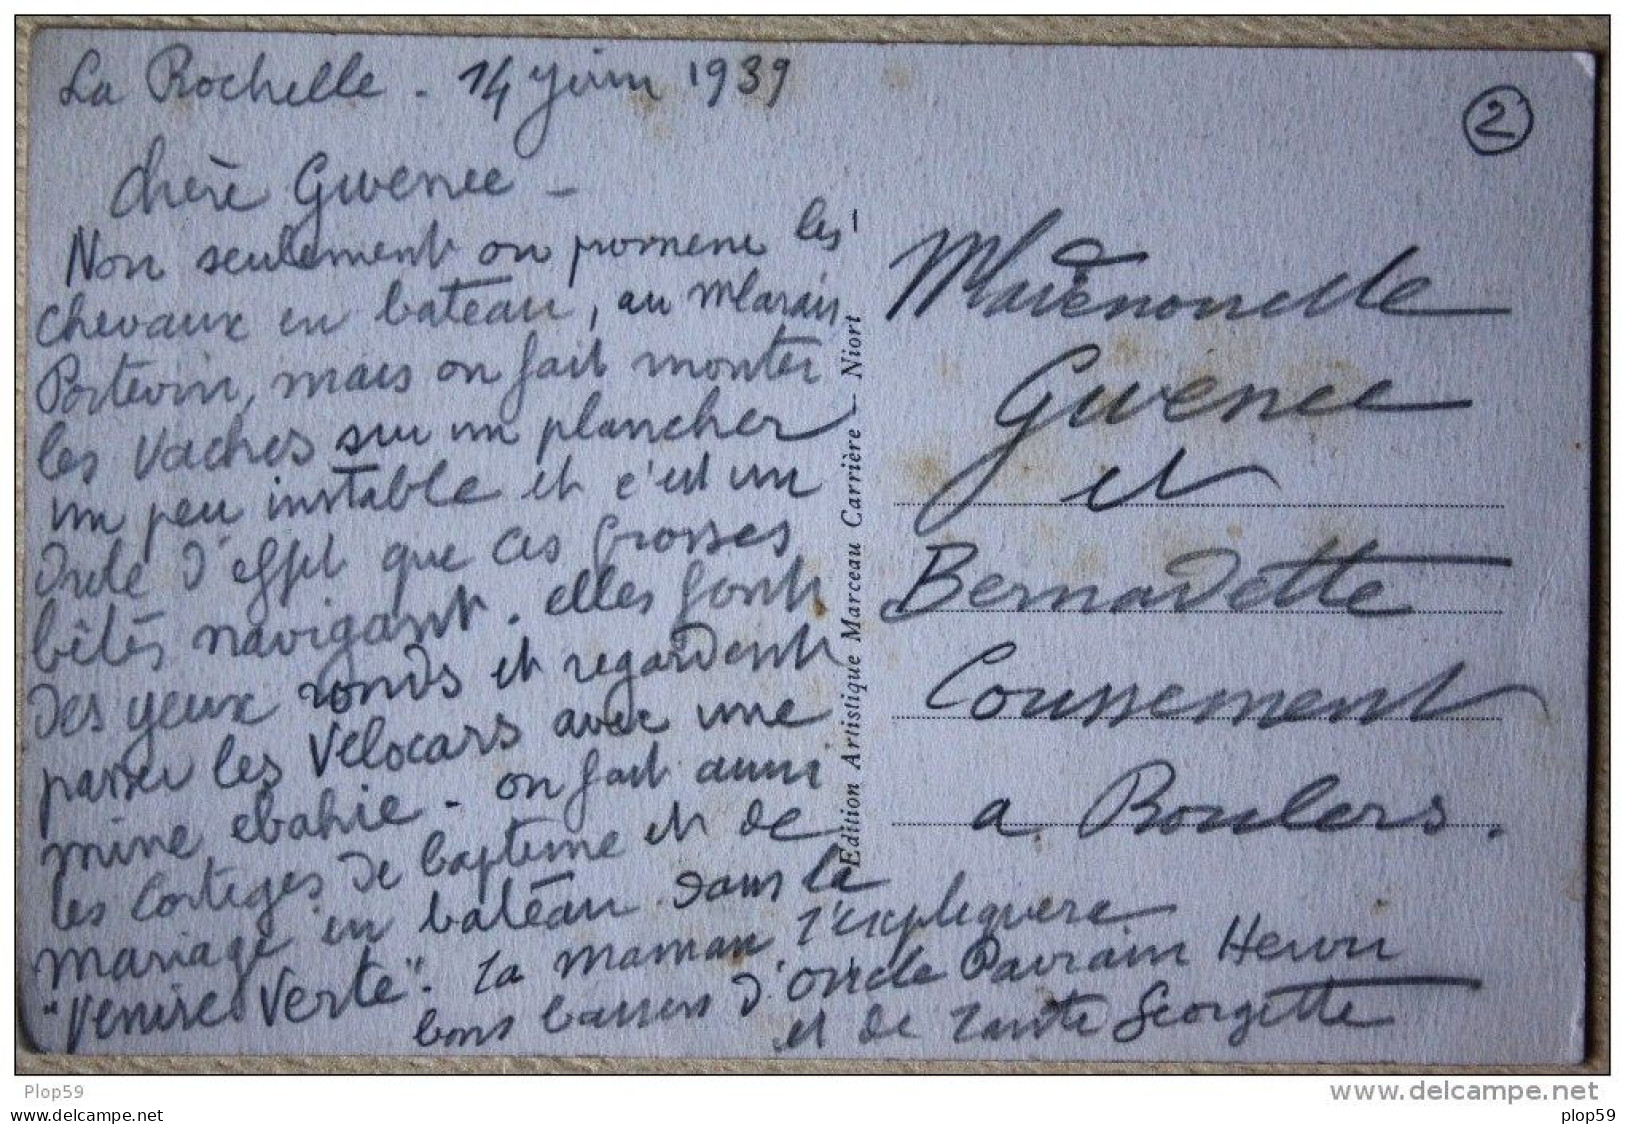 La Rochelle - 14 juin 1939
2
Chère Gwenee -
Non seulement on promene les
chevaux en bateau, au Marais
Poitevin, mais on fait monter
les vaches sur un plancher
un peu instable et c'est un
drole d'effet que ces grosses
bêtes navigant. elles font
des yeux ronds et regardent
passer les Vélocars avec une
mine ebahie - on fait aussi
les cortèges de bapteme et de
mariage en bateau dans la
"Venise Verte". ta maman t'expliquera
bons baisers d'oncle Parrain Henri
et de tante Georgette
Edition Artistique Marceau Carrière - Niort
Gwenee
et
Bernadette
Coussement
a Roulers.
Plop59
www.delcampe.net
www.delcampe.net
plop59